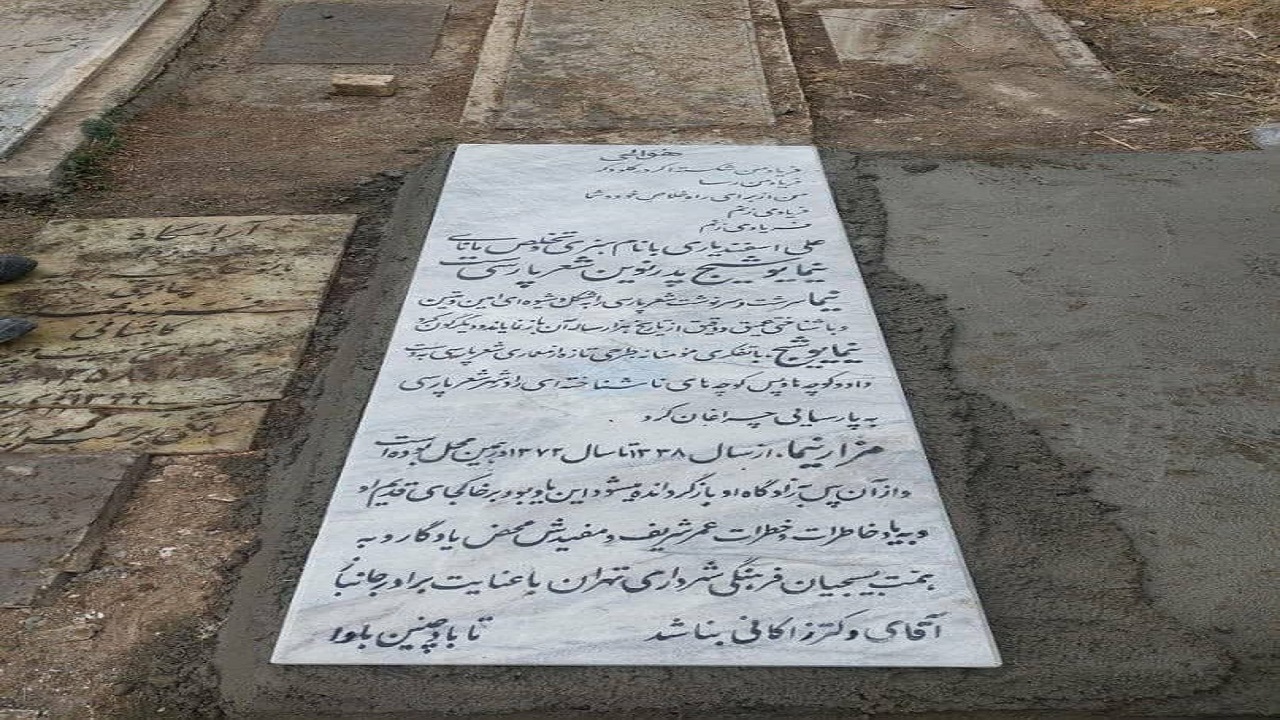 هوالحی
فریاد من شکسته اگر در گلو وگر
فریاد من رسا
من از برای راه خلاص خود و شما
فریاد می زنم
فریاد می زنم
علی اسفندیاری با نام هنری و تخلص
نیما یوشیج پدر نوین شعر پارسی
نیما سرشت و سرنوشت شعر پارسی را به شکل و شیوه ای امین و متین
و با شناختی عمیق و دقیق از تاریخ هزار ساله آن باز نمایاند و دیگرگون کرد
نیما یوشیج، با تفکری مؤمنانه طرحی تازه از معماری شعر پارسی به دست
داد و کوچه ها و پس کوچه های ناشناخته ای را در شهر شعر پارسی
به پارسایی چراغان کرد.
مزار نیما، از سال ۱۳۳۸ تا سال ۱۳۷۲ در همین محل بوده است
و از آن پس به زادگاه او بازگردانده میشود این یادبود بر خاکجای قدیم او
و به یاد خاطرات و خطرات عمر شریف و مفیدش محض یادگار و به
همت بسیجیان فرهنگی شهرداری تهران با عنایت برادر جانباز
آقای دکتر زاکانی بنا شد تا باد چنین بادا
آرامگاه
کاشانی